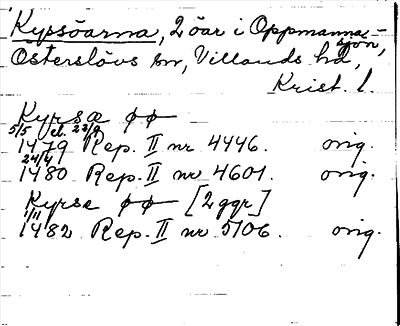 Kyssöarna, 2 öar i Oppmanna-
sjön,
Österslövs sn, Villands hd,
Krist. l.
Kyrsæ øø
5/5 el. 23/9
1479 Rep. II nr 4446. orig.
24/4
1480 Rep. II nr 4601. orig.
Kyrse øø [2 ggr]
1/11
1482 Rep. II nr 5106. orig.